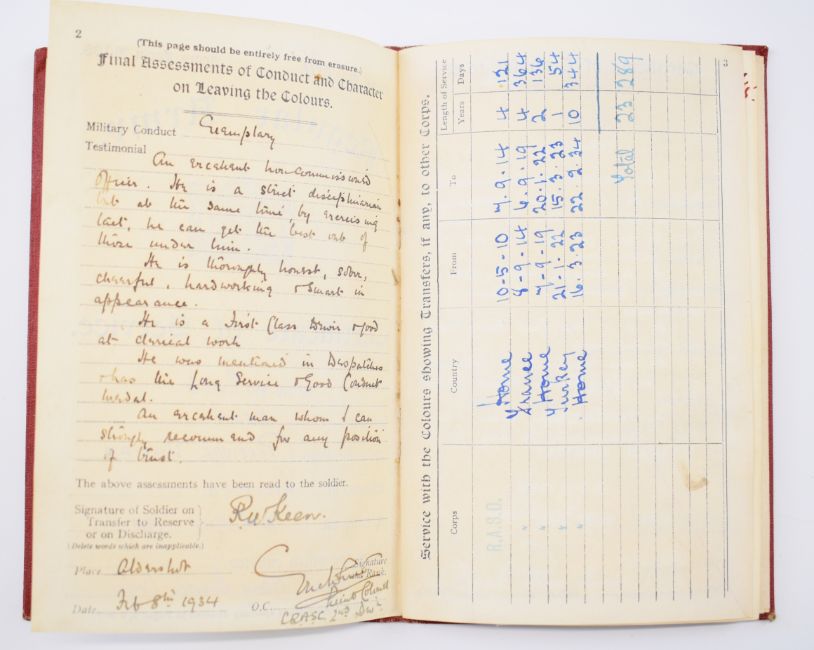 2
(This page should be entirely free from erasure.)
Final Assessments of Conduct and Character
on Leaving the Colours.
Military Conduct Exemplary
Testimonial
An excellent non-commissioned
officer. He is a strict disciplinarian
but at the same time, by exercising
tact, he can get the best out of
those under him.
He is thoroughly honest, sober,
cheerful, hardworking & smart in
appearance.
He is a First Class & good
at clerical work
He was mentioned in Despatches
& has the Long Service & Good Conduct
medal.
An excellent man whom I can
strongly recommend for any position
of trust.
The above assessments have been read to the soldier.
Signature of Soldier on
Transfer to Reserve
or on Discharge.
R W Keen.
(Delete words which are inapplicable.)
Place Aldershot
Signature
and Rank.
Date Feb 8th 1934
O.C.
Lieut Colonel
CRASC 2nd Divn
3
Service with the Colours showing Transfers, if any, to other Corps.
Corps Country From To Length of Service
Years Days
R.A.S.C. Home 10-5-10 7.9.14 4 121
" France 8-9-14 6.9.19 4 364
" Home 7-9-19 20.1.22 2 136
" Turkey 21-1-22 15.3.23 1 54
" Home 16.3.23 22.2.34 10 344
Total 23 289